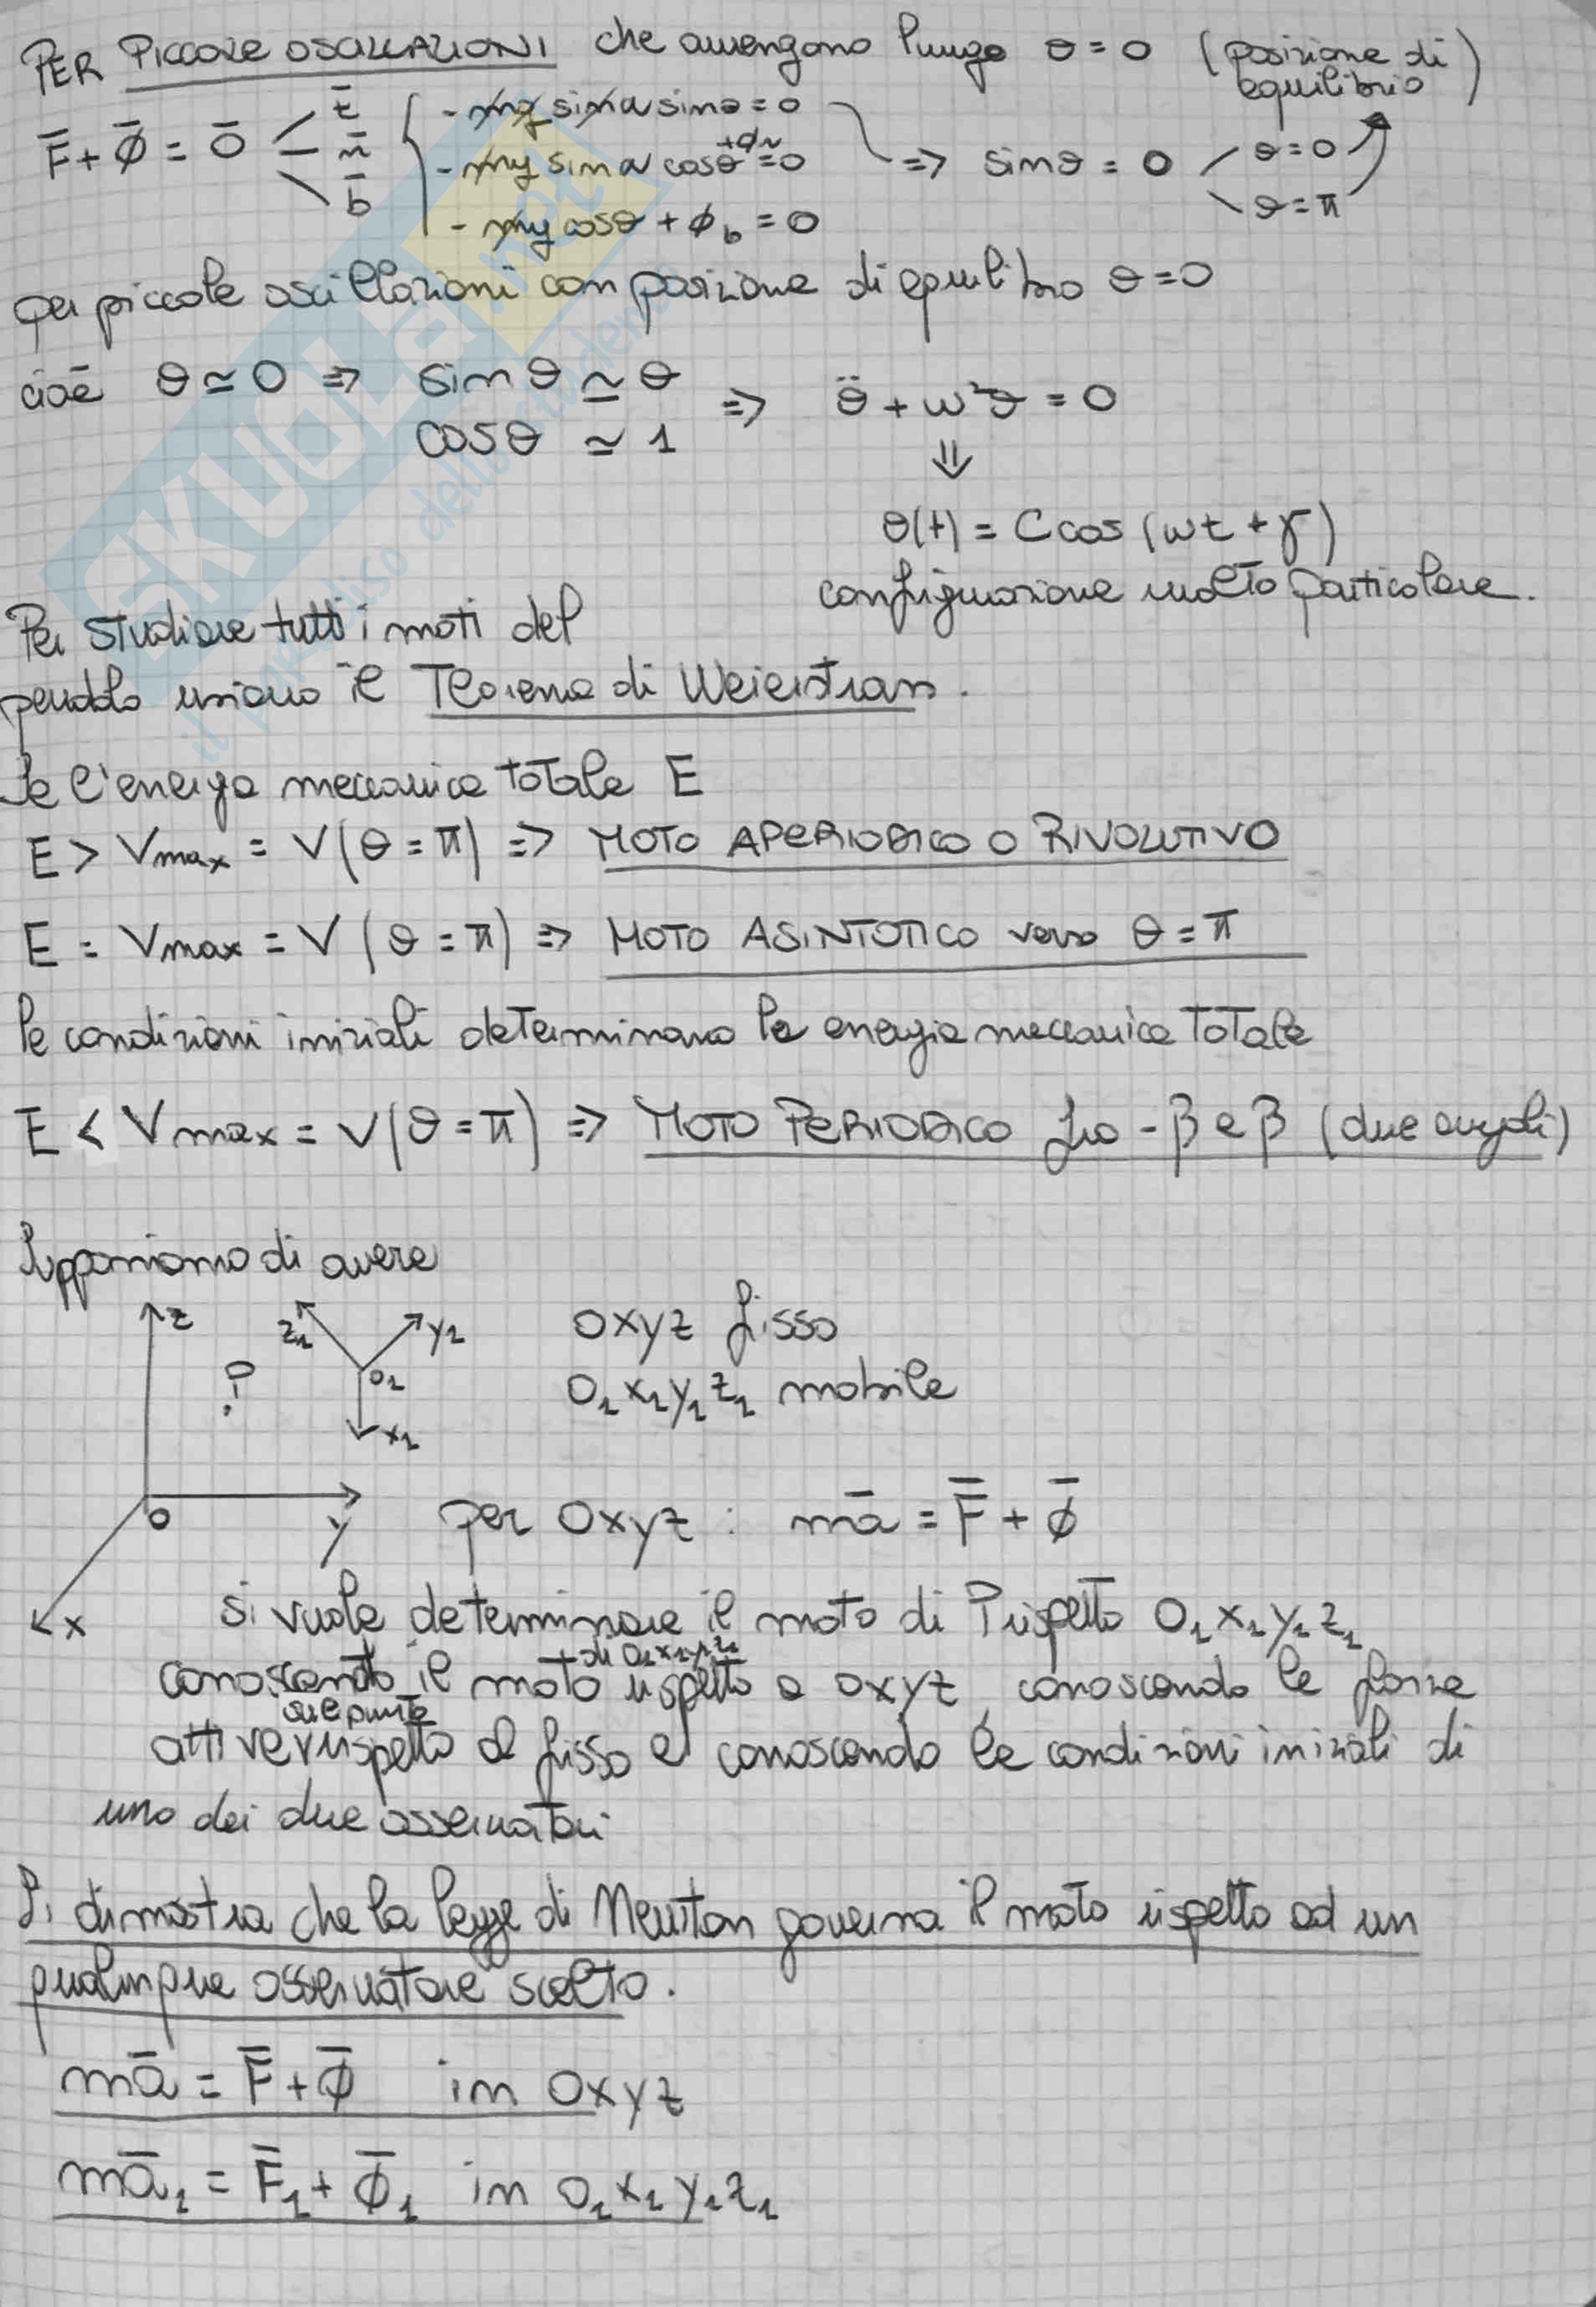 PER PICCOLE OSCILLAZIONI che avvengono lungo θ = 0 (posizione di equilibrio)
F̄ + Φ̄ = 0̄
t̄
n̄
b̄
- mg sinα sinθ = 0
- mg sinα cosθ + Φn = 0
- mg cosθ + Φb = 0
=> sinθ = 0
θ = 0
θ = π
per piccole oscillazioni con posizione di equilibrio θ = 0
cioè θ ≃ 0 => sinθ ≃ θ
cosθ ≃ 1
=> θ̈ + ω²θ = 0
⇓
θ(t) = C cos(ωt + γ)
configurazione molto particolare.
Per studiare tutti i moti del
pendolo usiamo il Teorema di Weierstrass.
Se l'energia meccanica totale E
E > Vmax = V(θ = π) => MOTO APERIODICO O RIVOLUTIVO
E = Vmax = V(θ = π) => MOTO ASINTOTICO verso θ = π
le condizioni iniziali determinano la energia meccanica totale
E < Vmax = V(θ = π) => MOTO PERIODICO fra -β e β (due angoli)
Supponiamo di avere
z
z₁
y₁
O₁
x₁
?
O
y
x
Oxyz fisso
O₁x₁y₁z₁ mobile
per Oxyz : mā = F̄ + Φ̄
si vuole determinare il moto di P rispetto O₁x₁y₁z₁
conoscendo il moto di O₁x₁y₁z₁ rispetto a Oxyz, conoscendo le forze
attive sul punto rispetto al fisso e conoscendo le condizioni iniziali di
uno dei due osservatori
Si dimostra che la legge di Newton governa il moto rispetto ad un
qualunque osservatore scelto.
mā = F̄ + Φ̄ in Oxyz
mā₁ = F̄₁ + Φ̄₁ in O₁x₁y₁z₁
SKUOLA.net
il paradiso dello studente